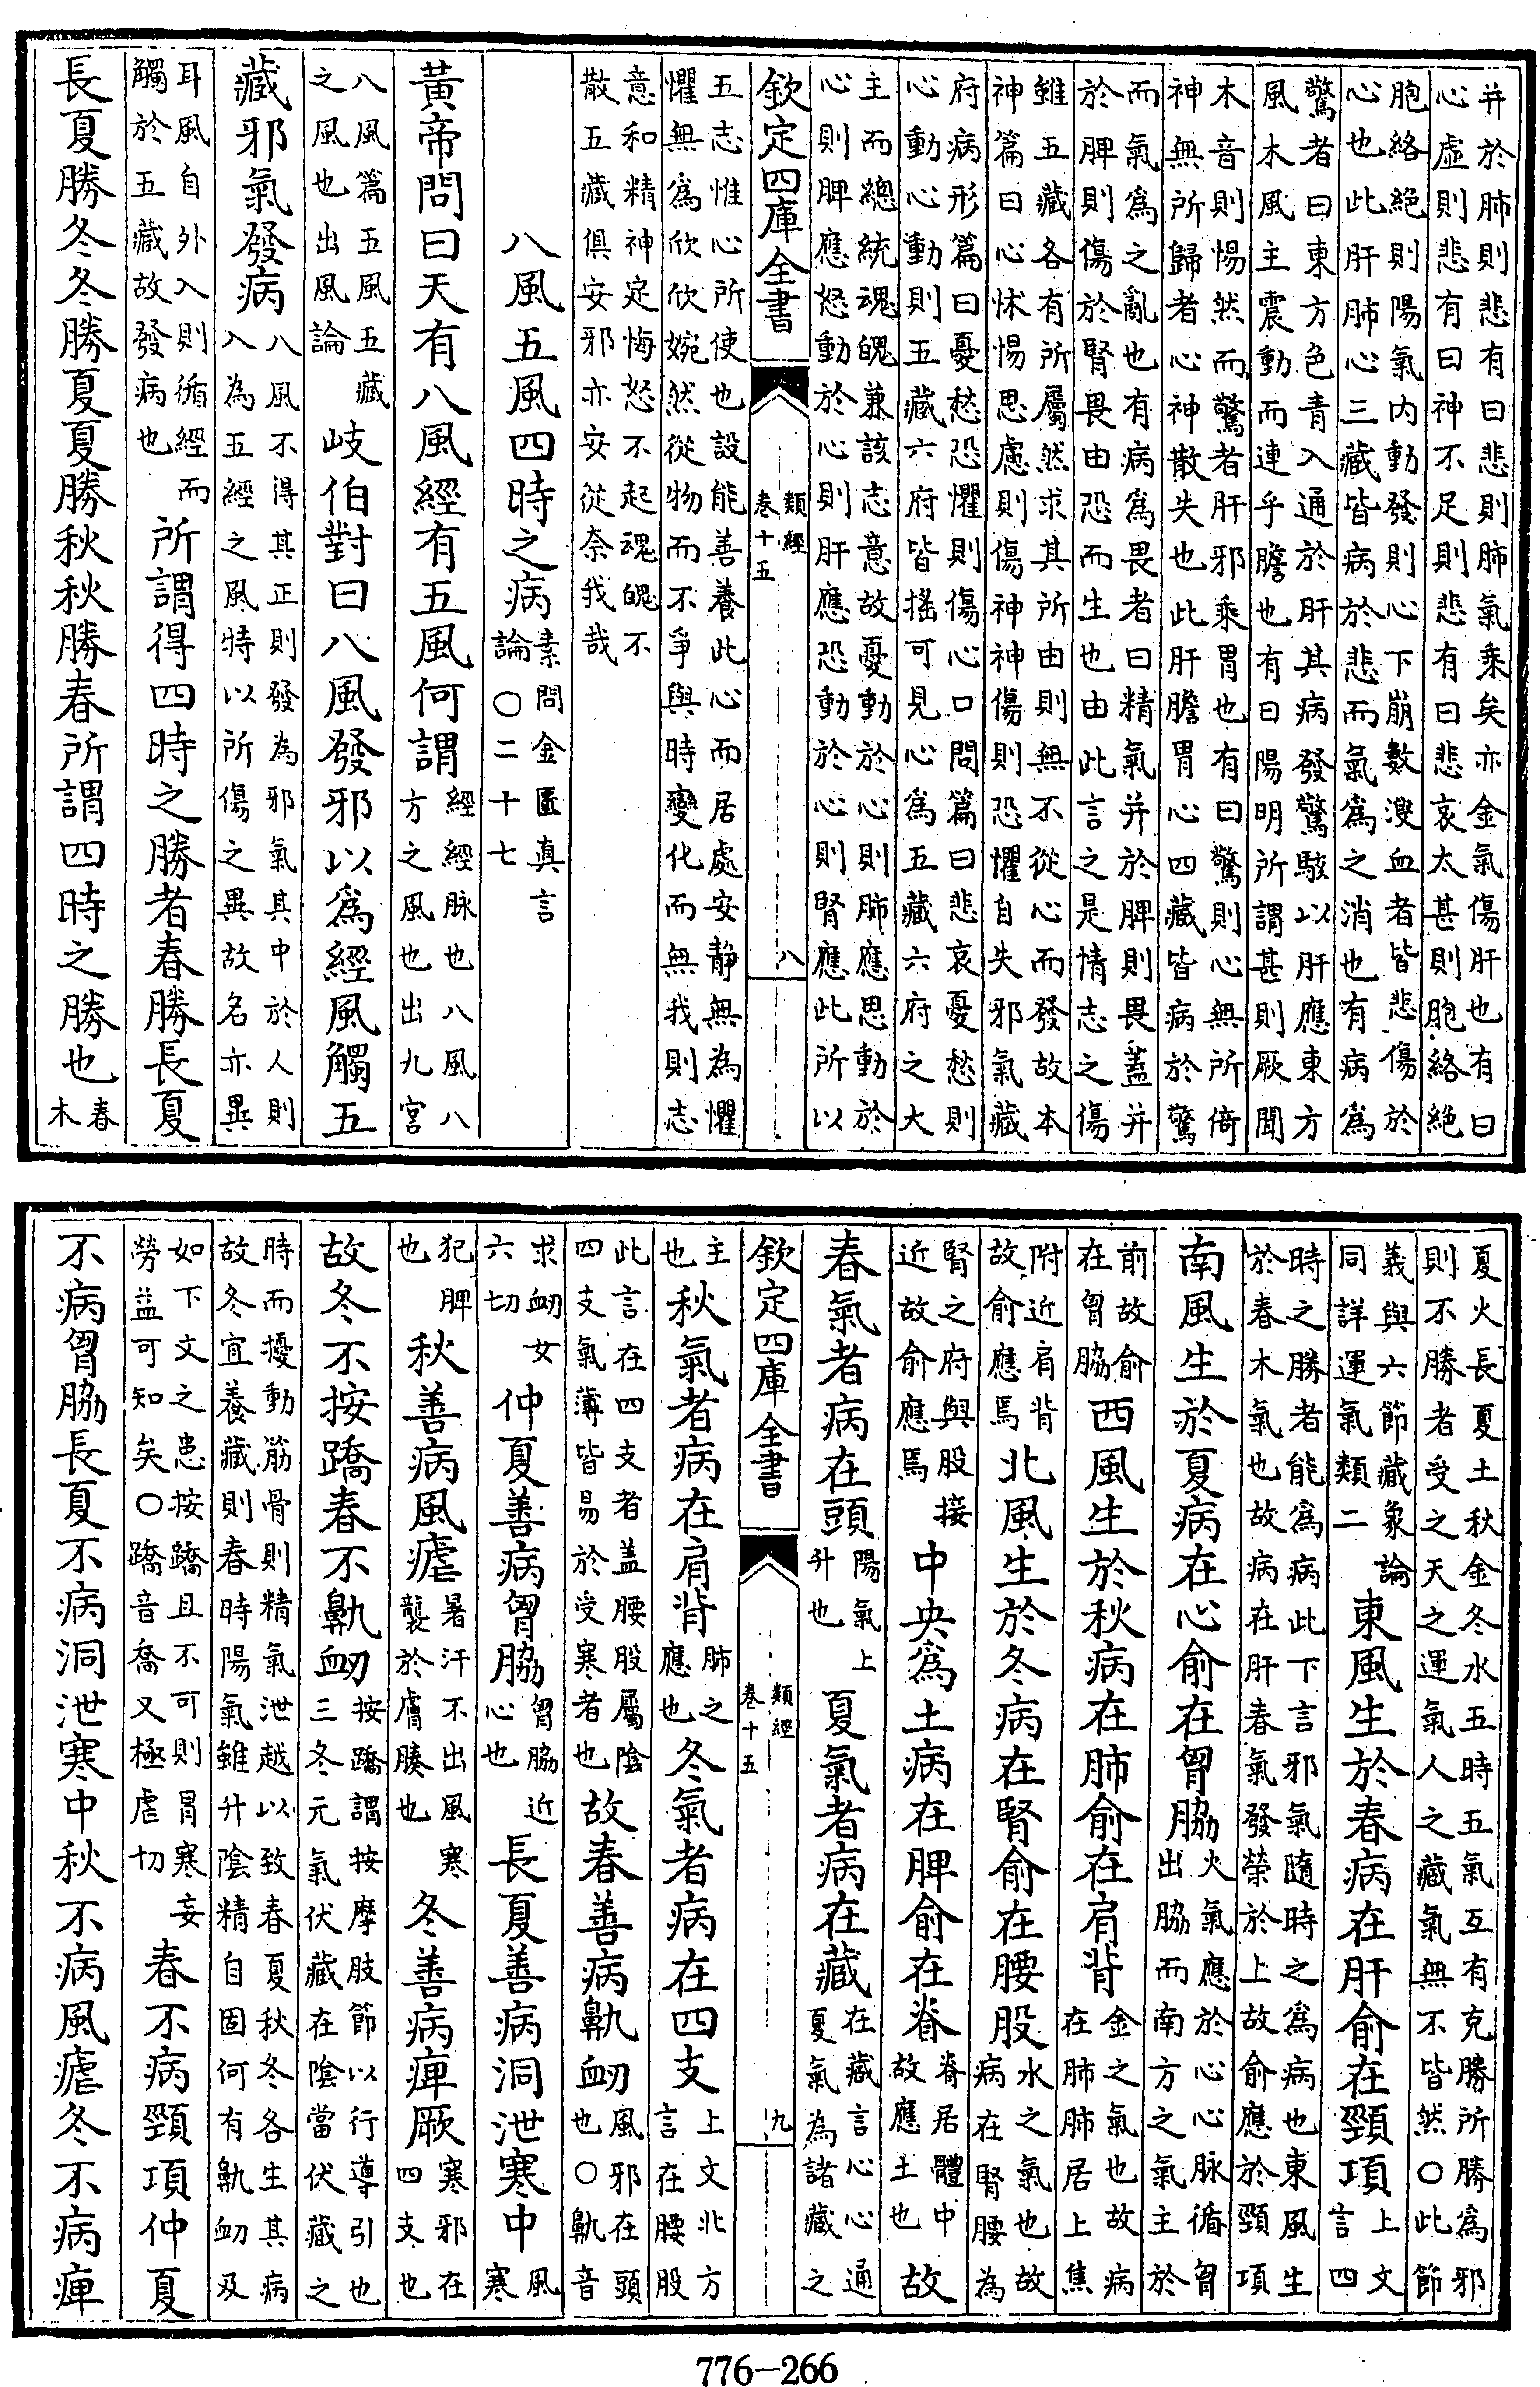 并於肺則悲有曰悲則肺氣乘矣亦金氣傷肝也有曰
心虛則悲有曰神不足則悲有曰悲哀太甚則胞絡絕
胞絡絕則陽氣内動發則心下崩數溲血者皆悲傷於
心也此肝肺心三藏皆病於悲而氣為之消也有病為
驚者曰東方色青入通於肝其病發驚駭以肝應東方
風木風主震動而連乎膽也有曰陽明所謂甚則厥聞
木音則惕然而驚者肝邪乘胃也有曰驚則心無所倚
神無所歸者心神散失也此肝膽胃心四藏皆病於驚
而氣為之亂也有病為畏者曰精氣并於脾則畏蓋并
於脾則傷於腎畏由恐而生也由此言之是情志之傷
雖五藏各有所屬然求其所由則無不從心而發故本
神篇曰心怵惕思慮則傷神神傷則恐懼自失邪氣藏
府病形篇曰憂愁恐懼則傷心口問篇曰悲哀憂愁則
心動心動則五藏六府皆搖可見心為五藏六府之大
主而總統魂魄兼該志意故憂動於心則肺應思動於
心則脾應怒動於心則肝應恐動於心則腎應此所以
欽定四庫全書 類經 卷十五 八
五志惟心所使也設能善養此心而居處安静無為懼
懼無為欣欣婉然從物而不爭與時變化而無我則志
意和精神定悔怒不起魂魄不
散五藏俱安邪亦安從奈我哉
八風五風四時之病素問金匱真言論○二十七
黃帝問曰天有八風經有五風何謂經經脉也八風八方之風也出九宮
八風篇五風五藏之風也出風論岐伯對曰八風發邪以為經風觸五
藏邪氣發病八風不得其正則發為邪氣其中於人則入為五經之風特以所傷之異故名亦異
耳風自外入則循經而觸於五藏故發病也所謂得四時之勝者春勝長夏
長夏勝冬冬勝夏夏勝秋秋勝春所謂四時之勝也春木
夏火長夏土秋金冬水五時五氣互有克勝所勝為邪
則不勝者受之天之運氣人之藏氣無不皆然○此節
義與六節藏象論同詳運氣類二東風生於春病在肝俞在頸項上文言四
時之勝者能為病此下言邪氣隨時之為病也東風生
於春木氣也故病在肝春氣發榮於上故俞應於頸項
南風生於夏病在心俞在胷脇火氣應於心心脉循胷出脇而南方之氣主於
前故俞在胷脇西風生於秋病在肺俞在肩背金之氣也故病在肺肺居上焦
附近肩背故俞應焉北風生於冬病在腎俞在腰股水之氣也故病在腎腰為
腎之府與股接近故俞應焉中央為土病在脾俞在脊脊居體中故應土也故
春氣者病在頭陽氣上升也夏氣者病在藏在藏言心心通夏氣為諸藏之
欽定四庫全書 類經 卷十五 九
主也秋氣者病在肩背肺之應也冬氣者病在四支上文北方言在腰股
此言在四支者盖腰股屬陰四支氣薄皆易於受寒者也故春善病鼽衂風邪在頭也○鼽音
求衂女六切仲夏善病胷脇胷脇近心也長夏善病洞泄寒中風寒
犯脾也秋善病風瘧暑汗不出風寒襲於膚腠也冬善病痺厥寒邪在四支也
故冬不按蹻春不鼽衂按蹻謂按摩肢節以行導引也三冬元氣伏藏在陰當伏藏之
時而擾動筋骨則精氣泄越以致春夏秋冬各生其病
故冬宜養藏則春時陽氣雖升陰精自固何有鼽衂及
如下文之患按蹻且不可則冐寒妄勞益可知矣○蹻音喬又極虐切春不病頸項仲夏
不病胷脇長夏不病洞泄寒中秋不病風瘧冬不病痺
776-266